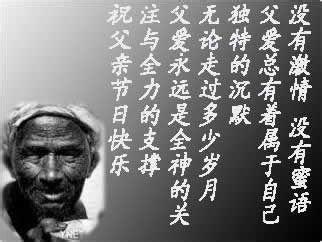 没有激情 没有蜜语
父爱总有着属于自己
独特的沉默
无论走过多少岁月
父爱永远是全神的关
注与全力的支撑
祝父亲节日快乐